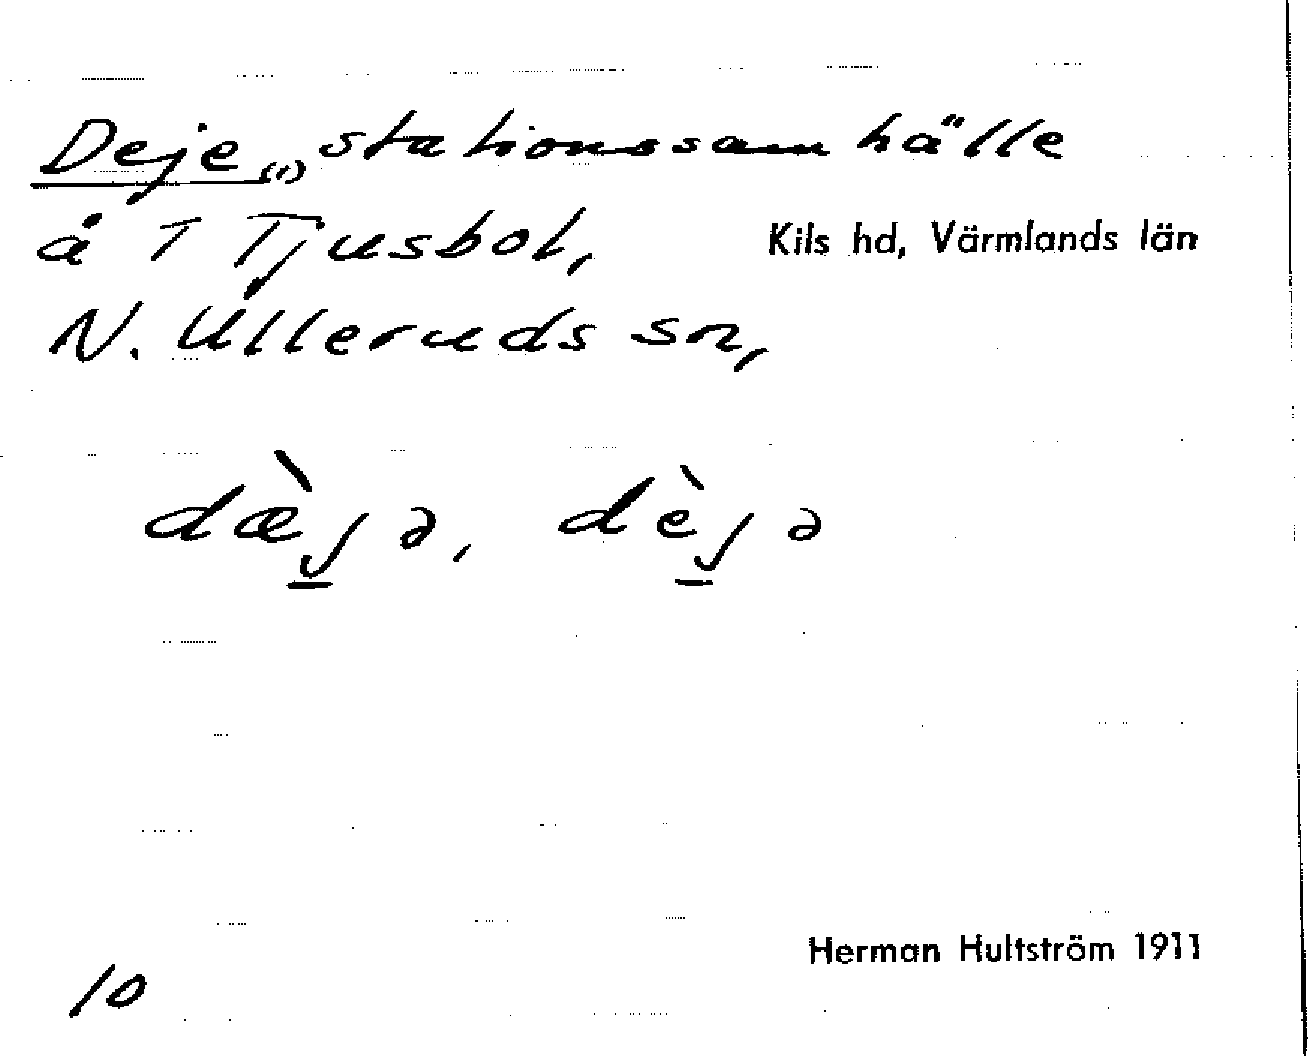 Deje(1), stationssamhälle
å 1 Tjusbol,
Kils hd, Värmlands län
N. Ulleruds sn,
dæ̀j̲ə, dèj̲ə
Herman Hultström 1911
10